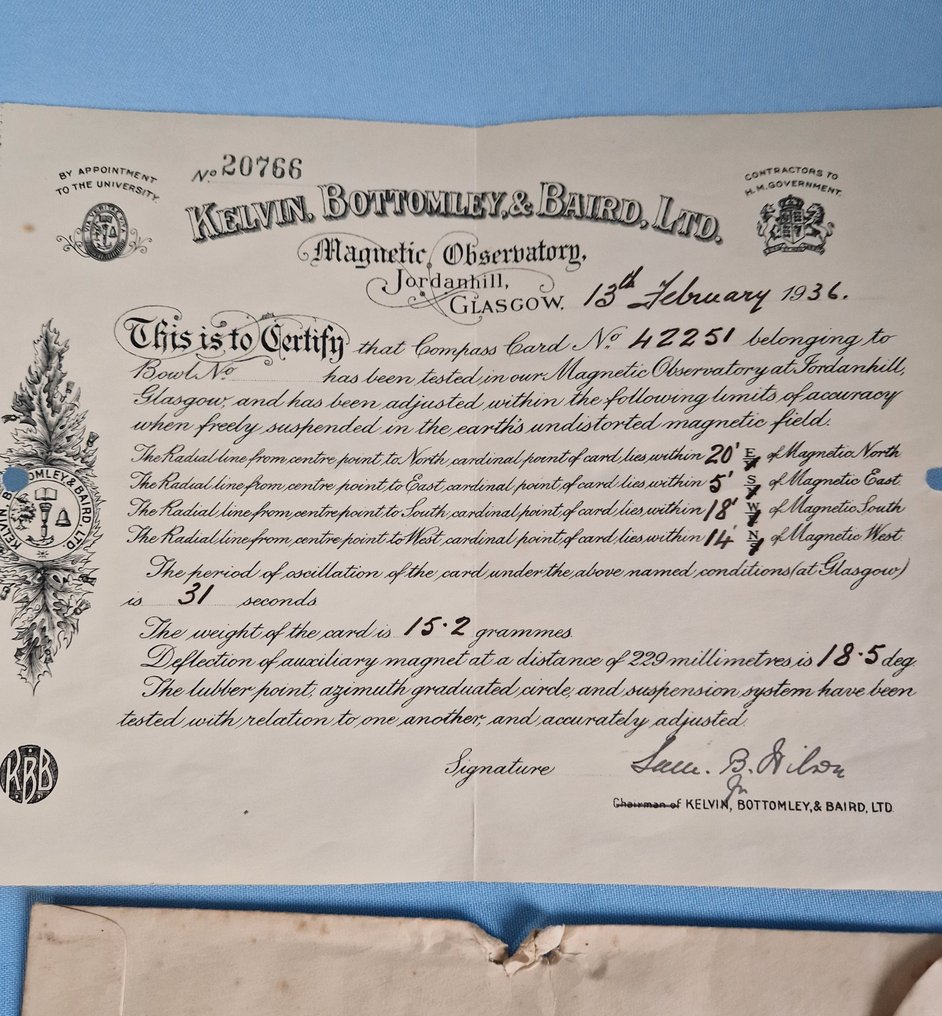 BY APPOINTMENT
TO THE UNIVERSITY.
No 20766
CONTRACTORS TO
H.M. GOVERNMENT.
KELVIN, BOTTOMLEY, & BAIRD, LTD.
Magnetic Observatory,
Jordanhill,
GLASGOW. 13th February 1936.
This is to Certify that Compass Card No 42251 belonging to
Bowl No has been tested in our Magnetic Observatory at Jordanhill,
Glasgow, and has been adjusted within the following limits of accuracy
when freely suspended in the earth's undistorted magnetic field.
The Radial line from centre point to North cardinal point of card lies within 20' E of Magnetic North
The Radial line from centre point to East cardinal point of card lies within 5' S of Magnetic East
The Radial line from centre point to South cardinal point of card lies within 18' W of Magnetic South
The Radial line from centre point to West cardinal point of card lies within 14' N of Magnetic West
The period of oscillation of the card under the above named conditions (at Glasgow)
is 31 seconds
The weight of the card is 15.2 grammes.
Deflection of auxiliary magnet at a distance of 229 millimetres is 18.5 deg.
The lubber point, azimuth graduated circle, and suspension system have been
tested with relation to one another, and accurately adjusted.
Signature Sam. B. Wilson
Chairman of KELVIN, BOTTOMLEY, & BAIRD, LTD.
KELVIN, B OMLEY & BAIRD, LTD.
KBB